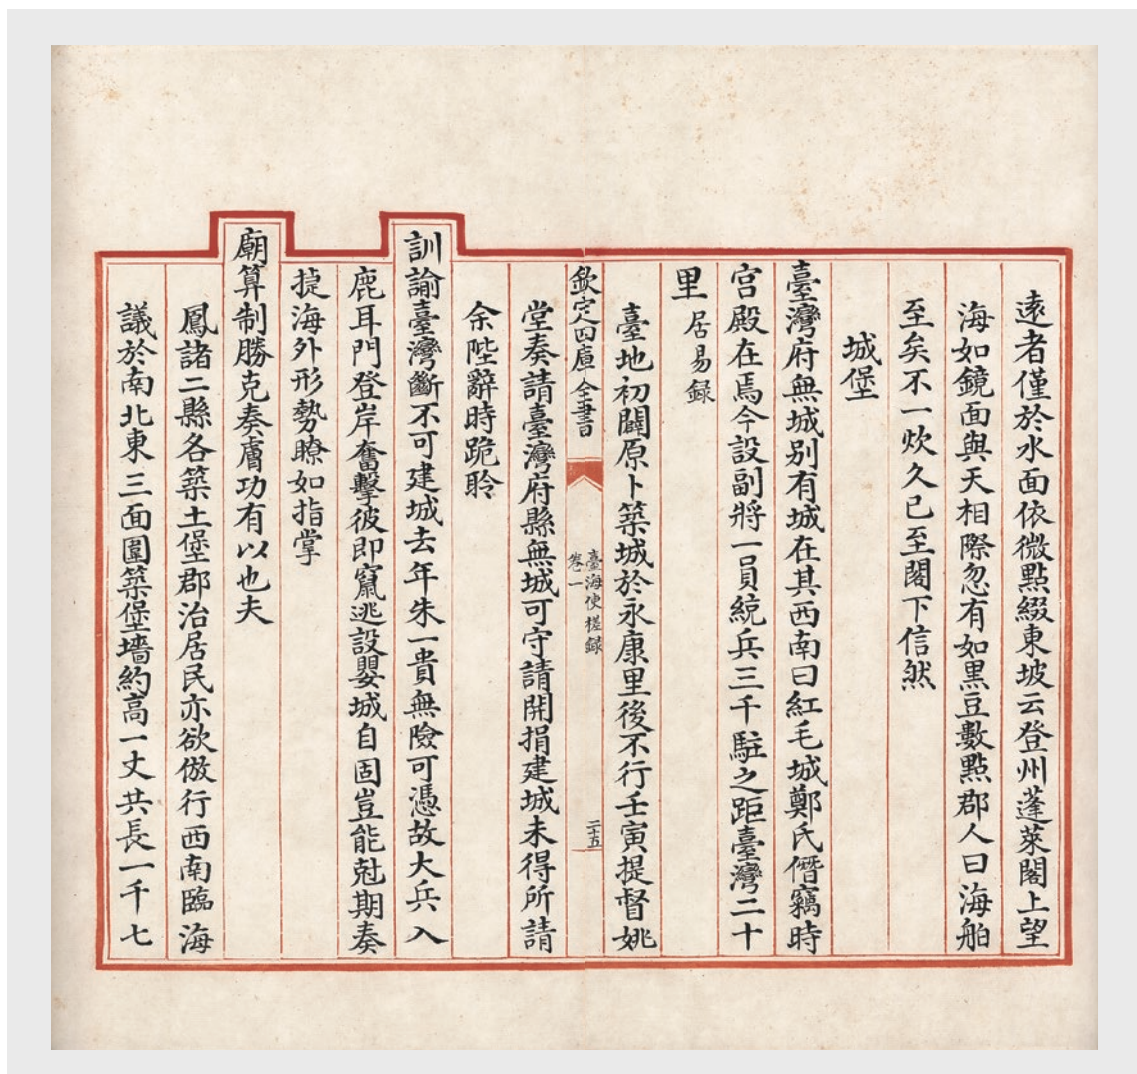 遠者僅於水面依微點綴東坡云登州蓬萊閣上望
海如鏡面與天相際忽有如黒豆數點郡人曰海舶
至矣不一炊久已至閣下信然
城堡
臺灣府無城别有城在其西南曰紅毛城鄭氏僭竊時
宫殿在焉今設副將一員統兵三千駐之距臺灣二十
里居易録
臺地初闢原卜築城於永康里後不行壬寅提督姚
欽定四庫全書
臺海使槎録
卷一
二十五
堂奏請臺灣府縣無城可守請開捐建城未得所請
余陛辭時跪聆
訓諭臺灣斷不可建城去年朱一貴無險可憑故大兵入
鹿耳門登岸奮擊彼即竄逃設嬰城自固豈能尅期奏
㨗海外形勢瞭如指掌
廟算制勝克奏膚功有以也夫
鳳諸二縣各築土堡郡治居民亦欲倣行西南臨海
議於南北東三面圍築堡墻約高一丈共長一千七